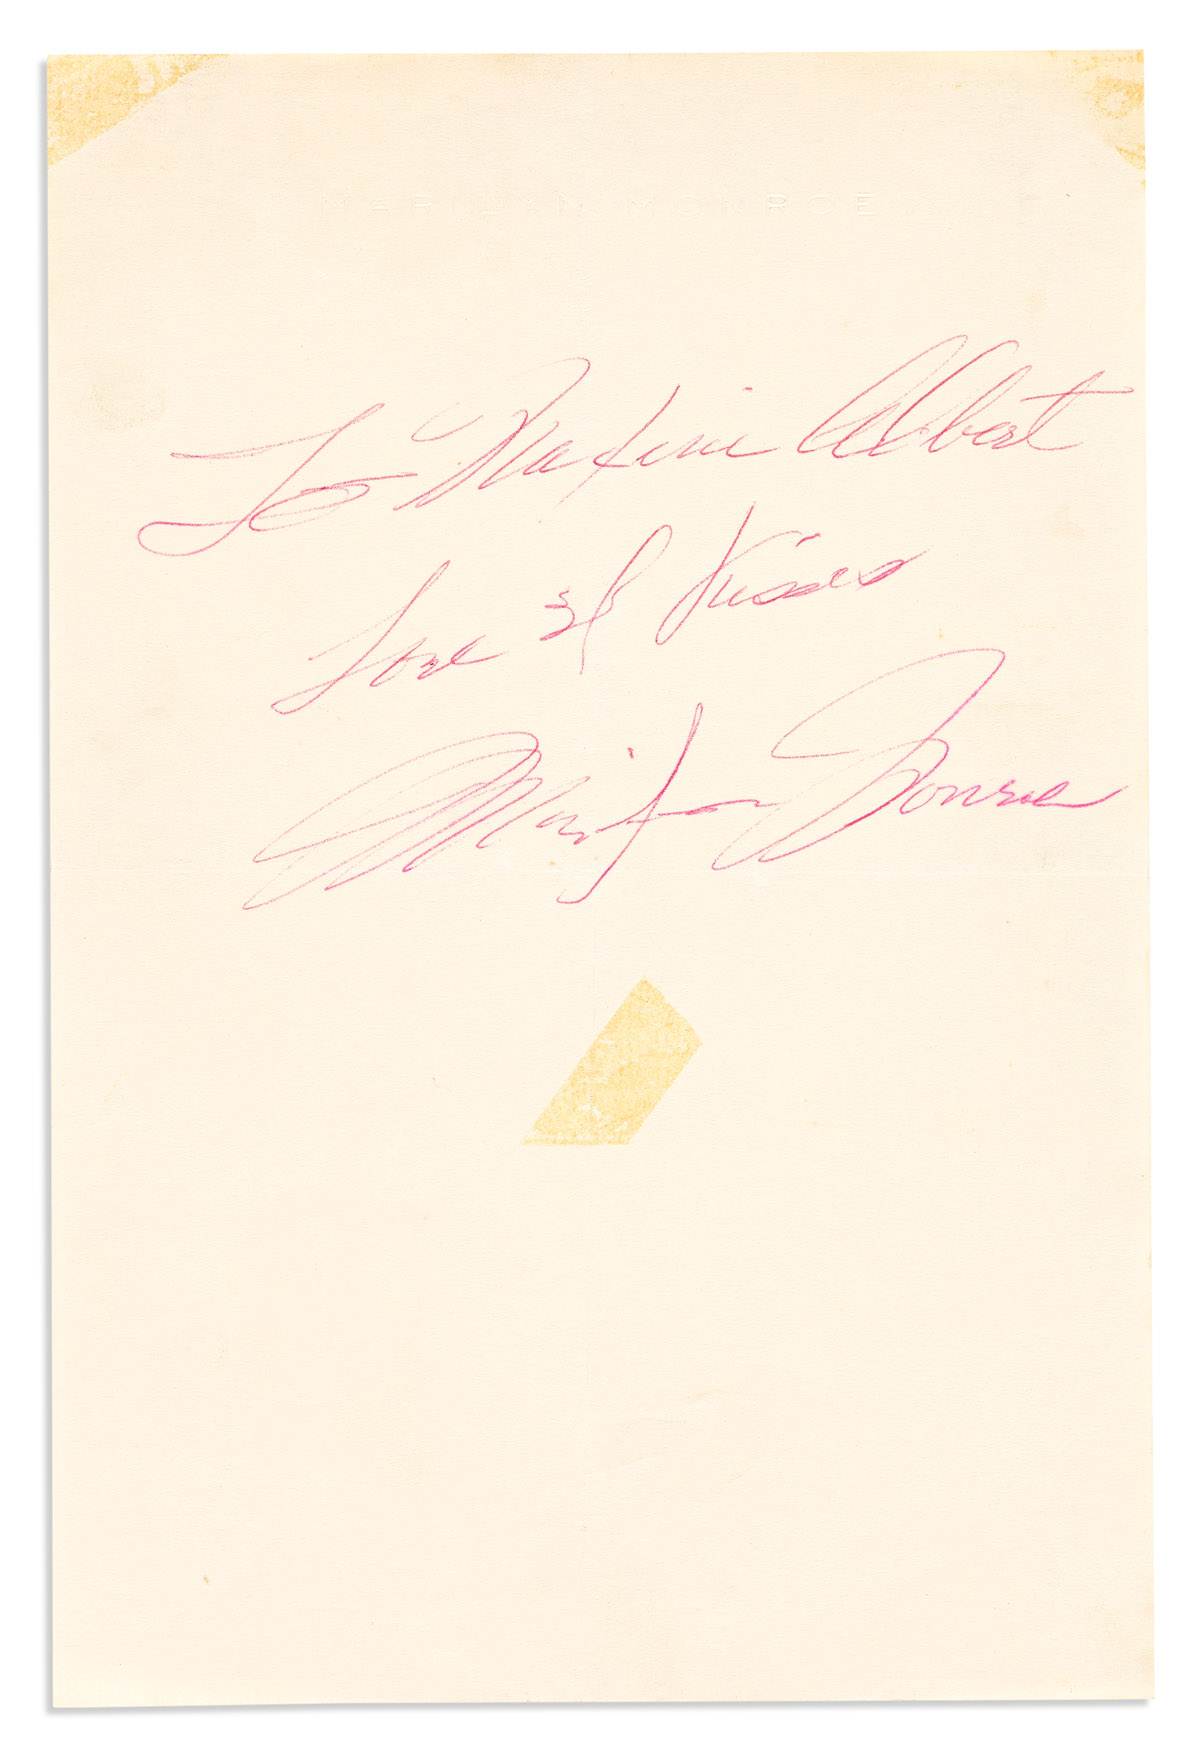 MARILYN MONROE
To Maxine Albert
Love & Kisses
Marilyn Monroe